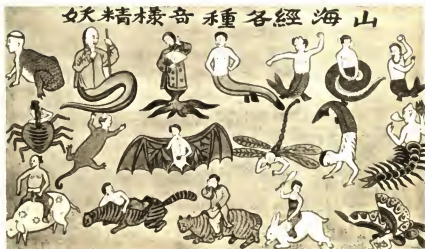 山海經各種奇樣精妖